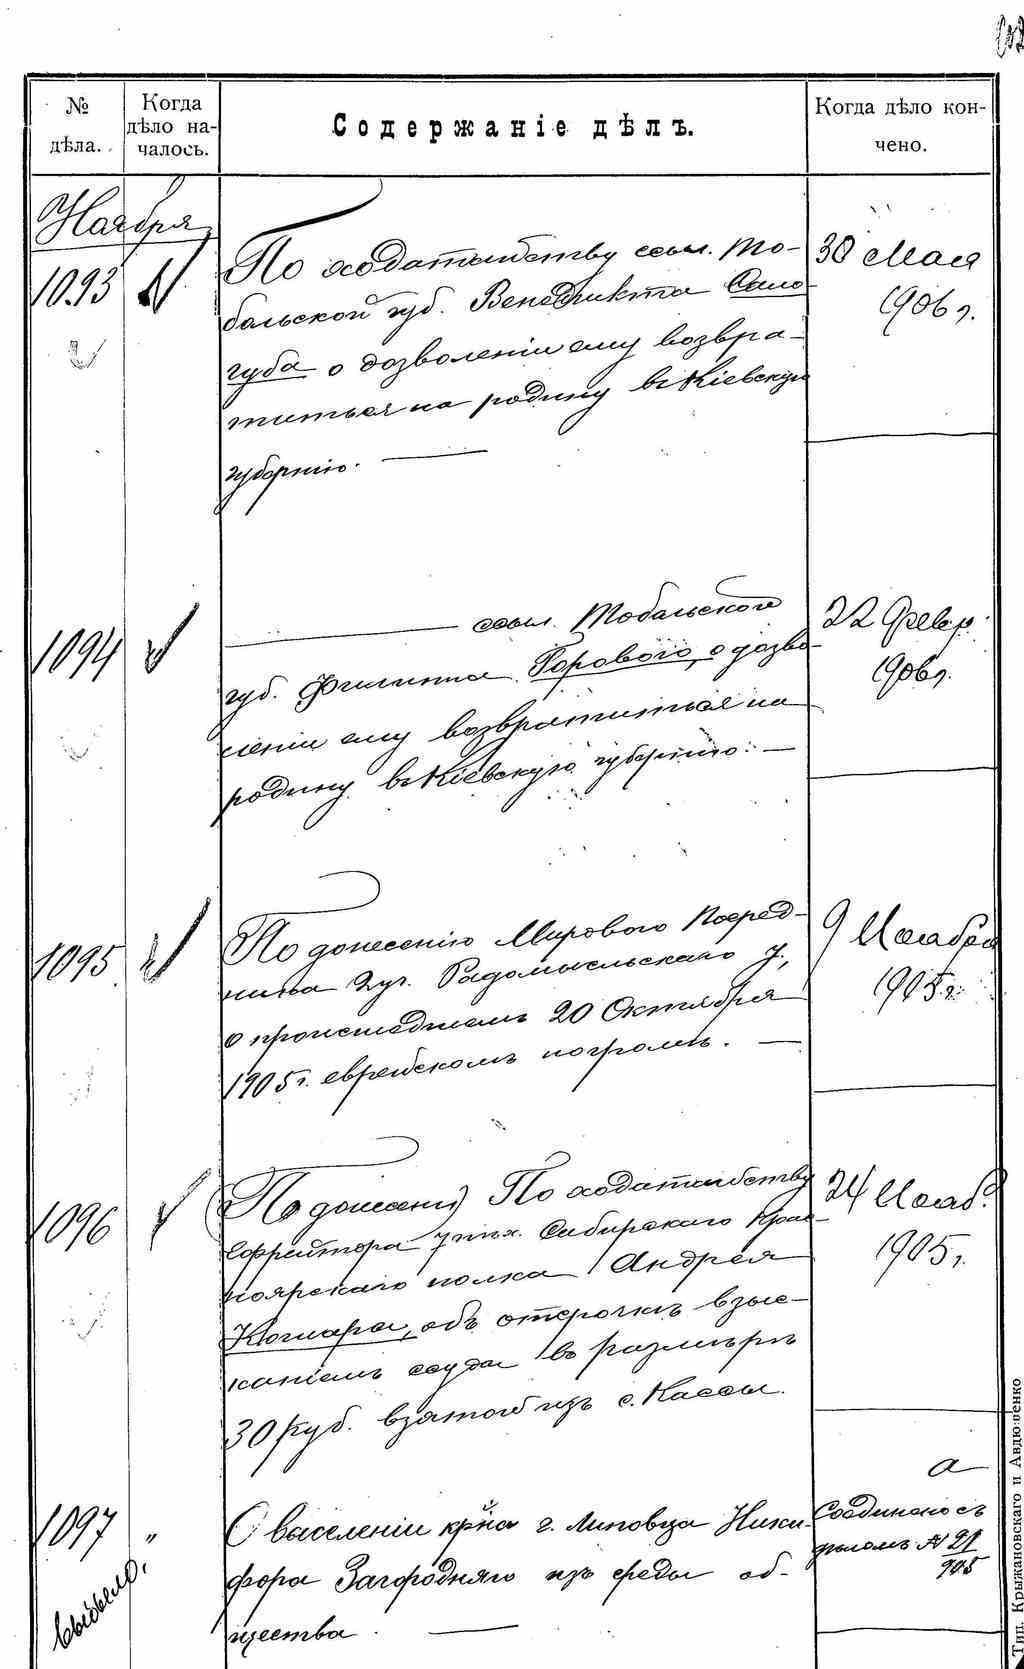 № дѣла.
Когда дѣло на-
чалось.
Содержаніе дѣлъ.
Когда дѣло кон-
чено.
Ноября
1093
По ходатайству ссыл. То-
больской губ. Венедикта Соло-
губа о дозволеніи ему возвра-
титься на родину въ Кіевскую
губернію. —
30 Мая
1906 г.
1094
— ссыл. Тобольской
губ. Филиппа Горового, о дозво-
леніи ему возвратиться на
родину въ Кіевскую губернію. —
22 Февр.
1906 г.
1095
По донесенію Мирового Посред-
ника 2 уч. Радомысльскаго у.,
о происшедшемъ 20 Октября
1905 г. еврейскомъ погромѣ. —
9 Ноября
1905 г.
1096
(По донесені) По ходатайству
Ефрейтора 7 пѣх. Сибирскаго Крас-
ноярскаго полка Андрея
Кошара, объ отсрочкѣ взыс-
каніемъ ссуды въ размѣрѣ
30 руб. взятой изъ с. Кассы.
24 Нояб.
1905 г.
1097 "
О выселеніи кр-на г. Липовца Ники-
фора Загородняго изъ среды об-
щества. —
Соединено съ
дѣломъ № 21/905
выбыло.
Тип. Крыжановскаго и Авдюшенко